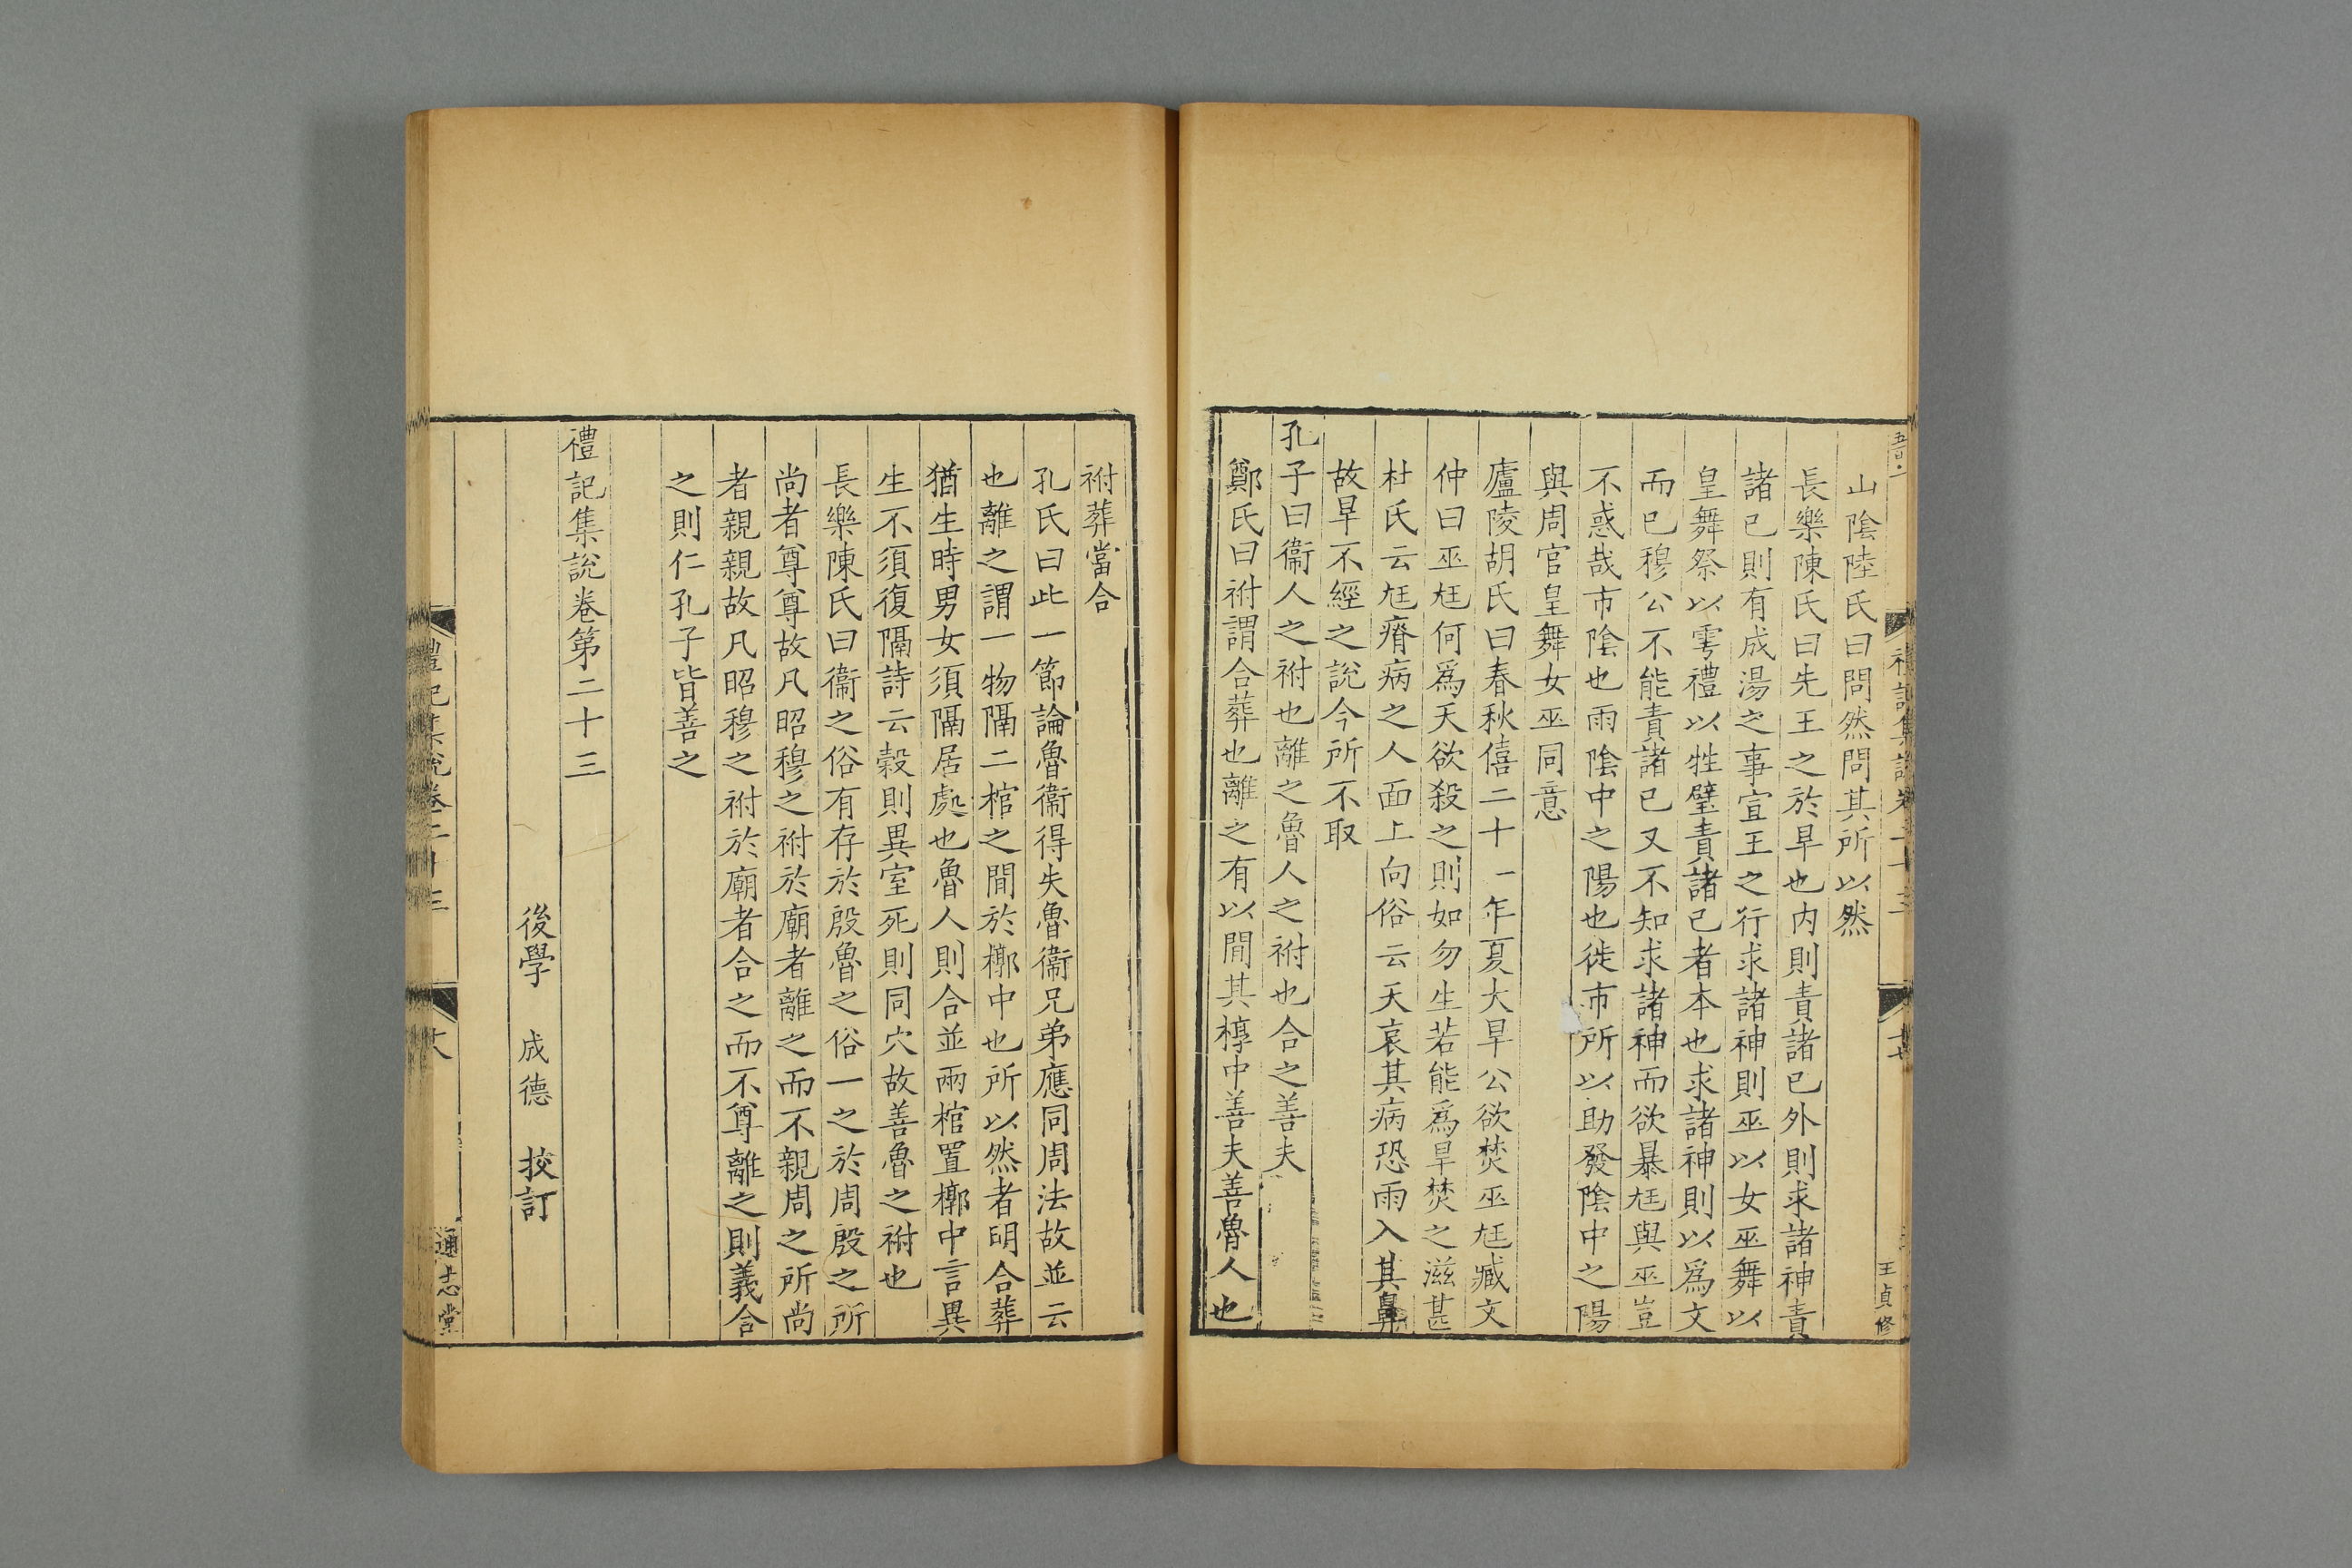 山陰陸氏曰問然問其所以然
長樂陳氏曰先王之於旱也内則責諸己外則求諸神責
諸已則有成湯之事宣王之行求諸神則巫以女巫舞以
皇舞祭以雩禮以牲璧責諸已者本也求諸神則以爲文
而已穆公不能責諸已又不知求諸神而欲暴尪與巫豈
不惑哉市陰也雨陰中之陽也徙市所以助發陰中之陽
與周官皇舞女巫同意
廬陵胡氏曰春秋僖二十一年夏大旱公欲焚巫尪臧文
仲曰巫尪何爲天欲殺之則如勿生若能爲旱焚之滋甚
杜氏云尪瘠病之人面上向俗云天哀其病恐雨入其鼻
故旱不經之說今所不取
孔子曰衞人之祔也離之魯人之祔也合之善夫
鄭氏曰祔謂合葬也離之有以間其椁中善夫善魯人也
王貞修
祔葬當合
孔氏曰此一節論魯衞得失魯衞兄弟應同周法故並云
也離之謂一物隔二棺之間於槨中也所以然者明合葬
猶生時男女須隔居處也魯人則合並兩棺置槨中言異
生不須復隔詩云穀則異室死則同穴故善魯之祔也
長樂陳氏曰衞之俗有存於殷魯之俗一之於周殷之所
尚者尊尊故凡昭穆之祔於廟者離之而不親周之所尚
者親親故凡昭穆之祔於廟者合之而不尊離之則義合
之則仁孔子皆善之
禮記集說卷第二十三
後學 成德 挍訂
禮記集說卷二十三
通志堂